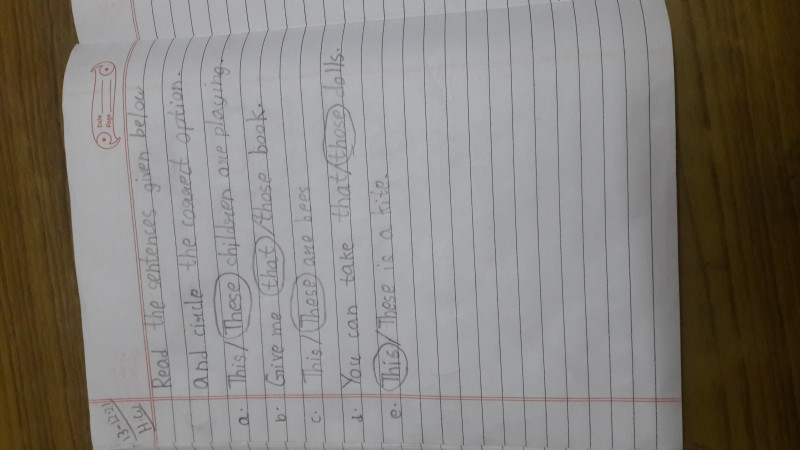 Date
Page
13-12-21
H.W
Read the sentences given below
and circle the correct option.
a. This/These children are playing.
b. Give me that/those book.
c. This/These are bees
d. You can take that/those dolls.
e. This/These is a kite.